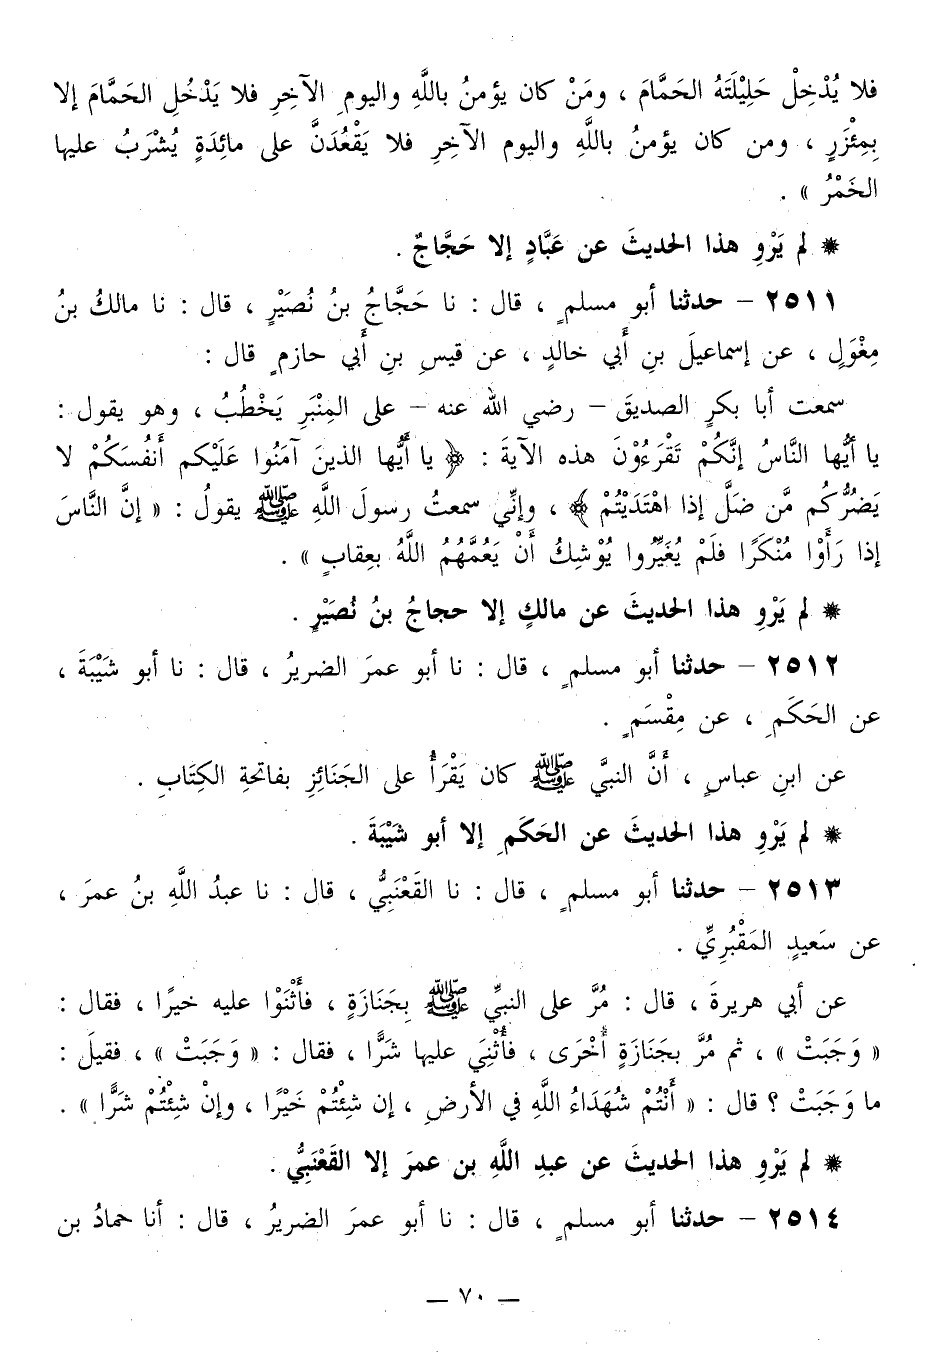 فلا يُدْخِلْ حَلِيْلَتَهُ الحَمَّامَ ، ومَنْ كان يؤمنُ باللَّهِ واليومِ الآخِرِ فلا يَدْخُلِ الحَمَّامَ إلا
بِمِئْزَرٍ ، ومن كان يؤمنُ باللَّهِ واليوم الآخِرِ فلا يَقْعُدَنَّ على مائِدَةٍ يُشْرَبُ عليها
الخَمْرُ » .
* لم يَرْوِ هذا الحديثَ عن عَبَّادٍ إلا حَجَّاجٌ .
٢٥١١ - حدثنا أبو مسلمٍ ، قال : نا حَجَّاجُ بنُ نُصَيْرٍ ، قال : نا مالكُ بنُ
مِغْوَلٍ ، عن إسماعيلَ بنِ أَبي خالدٍ ، عن قيسِ بنِ أَبي حازمٍ قال :
سمعت أبا بكرٍ الصديقَ - رضي الله عنه - على المِنْبَرِ يَخْطُبُ ، وهو يقول :
يا أيُّها النَّاسُ إنَّكُمْ تَقْرَءُوْنَ هذه الآيةَ : ﴿ يا أيُّها الذينَ آمَنُوا عَلَيْكم أنفُسَكُمْ لا
يَضرُّكُم مَّن ضَلَّ إذا اهْتَدَيْتُمْ ﴾ ، وإنِّي سمعتُ رسولَ اللَّهِ ﷺ يقولُ : « إنَّ النَّاسَ
إذا رَأَوْا مُنْكَرًا فلَمْ يُغَيِّرُوا يُوْشِكُ أنْ يَعُمَّهُمُ اللَّهُ بعِقابٍ » .
* لم يَرْوِ هذا الحديثَ عن مالكٍ إلا حجاجُ بنُ نُصَيْرٍ .
٢٥١٢ - حدثنا أبو مسلمٍ ، قال : نا أبو عمرَ الضريرُ ، قال : نا أبو شَيْبَةَ ،
عن الحَكَمِ ، عن مِقْسَمٍ .
عن ابنِ عباسٍ ، أَنَّ النبيَّ ﷺ كان يَقْرَأُ على الجَنَائِزِ بفاتحةِ الكِتَابِ .
* لم يَرْوِ هذا الحديثَ عن الحَكَمِ إلا أبو شَيْبَةَ .
٢٥١٣ - حدثنا أبو مسلمٍ ، قال : نا القَعْنَبِيُّ ، قال : نا عبدُ اللَّهِ بنُ عمرَ ،
عن سَعيدٍ المَقْبُرِيِّ .
عن أبي هريرةَ ، قال : مُرَّ على النبيِّ ﷺ بِجَنَازَةٍ ، فأَثْنَوْا عليه خيرًا ، فقال :
« وَجَبَتْ » ، ثم مُرَّ بجَنَازَةٍ أُخْرَى ، فأُثْنِيَ عليها شَرًّا ، فقال : « وَجَبَتْ » ، فقيلَ :
ما وَجَبَتْ ؟ قال : « أَنْتُمْ شُهَدَاءُ اللَّهِ في الأرضِ ، إن شِئْتُمْ خَيْرًا ، وإنْ شِئْتُمْ شَرًّا » .
* لم يَرْوِ هذا الحديثَ عن عبدِ اللَّهِ بن عمرَ إلا القَعْنَبِيُّ .
٢٥١٤ - حدثنا أبو مسلمٍ ، قال : نا أبو عمرَ الضريرُ ، قال : أنا حمادُ بن
— ٧٠ —